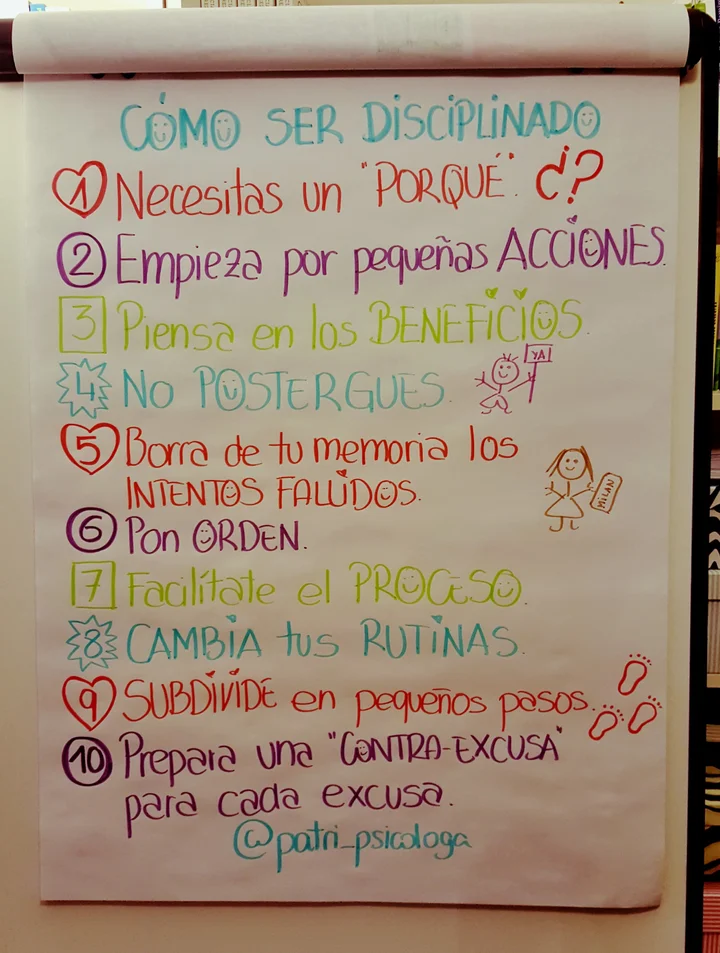 CÓMO SER DISCIPLINADO
1 Necesitas un "PORQUÉ". ¿?
2 Empieza por pequeñas ACCIONES.
3 Piensa en los BENEFICIOS.
4 No POSTERGUES.
YA
5 Borra de tu memoria los
INTENTOS FALLIDOS.
MILAN
6 Pon ORDEN.
7 Facilítate el PROCESO.
8 CAMBIA tus RUTINAS.
9 SUBDIVIDE en pequeños pasos.
10 Prepara una "CONTRA-EXCUSA"
para cada excusa.
@patri_psicologa